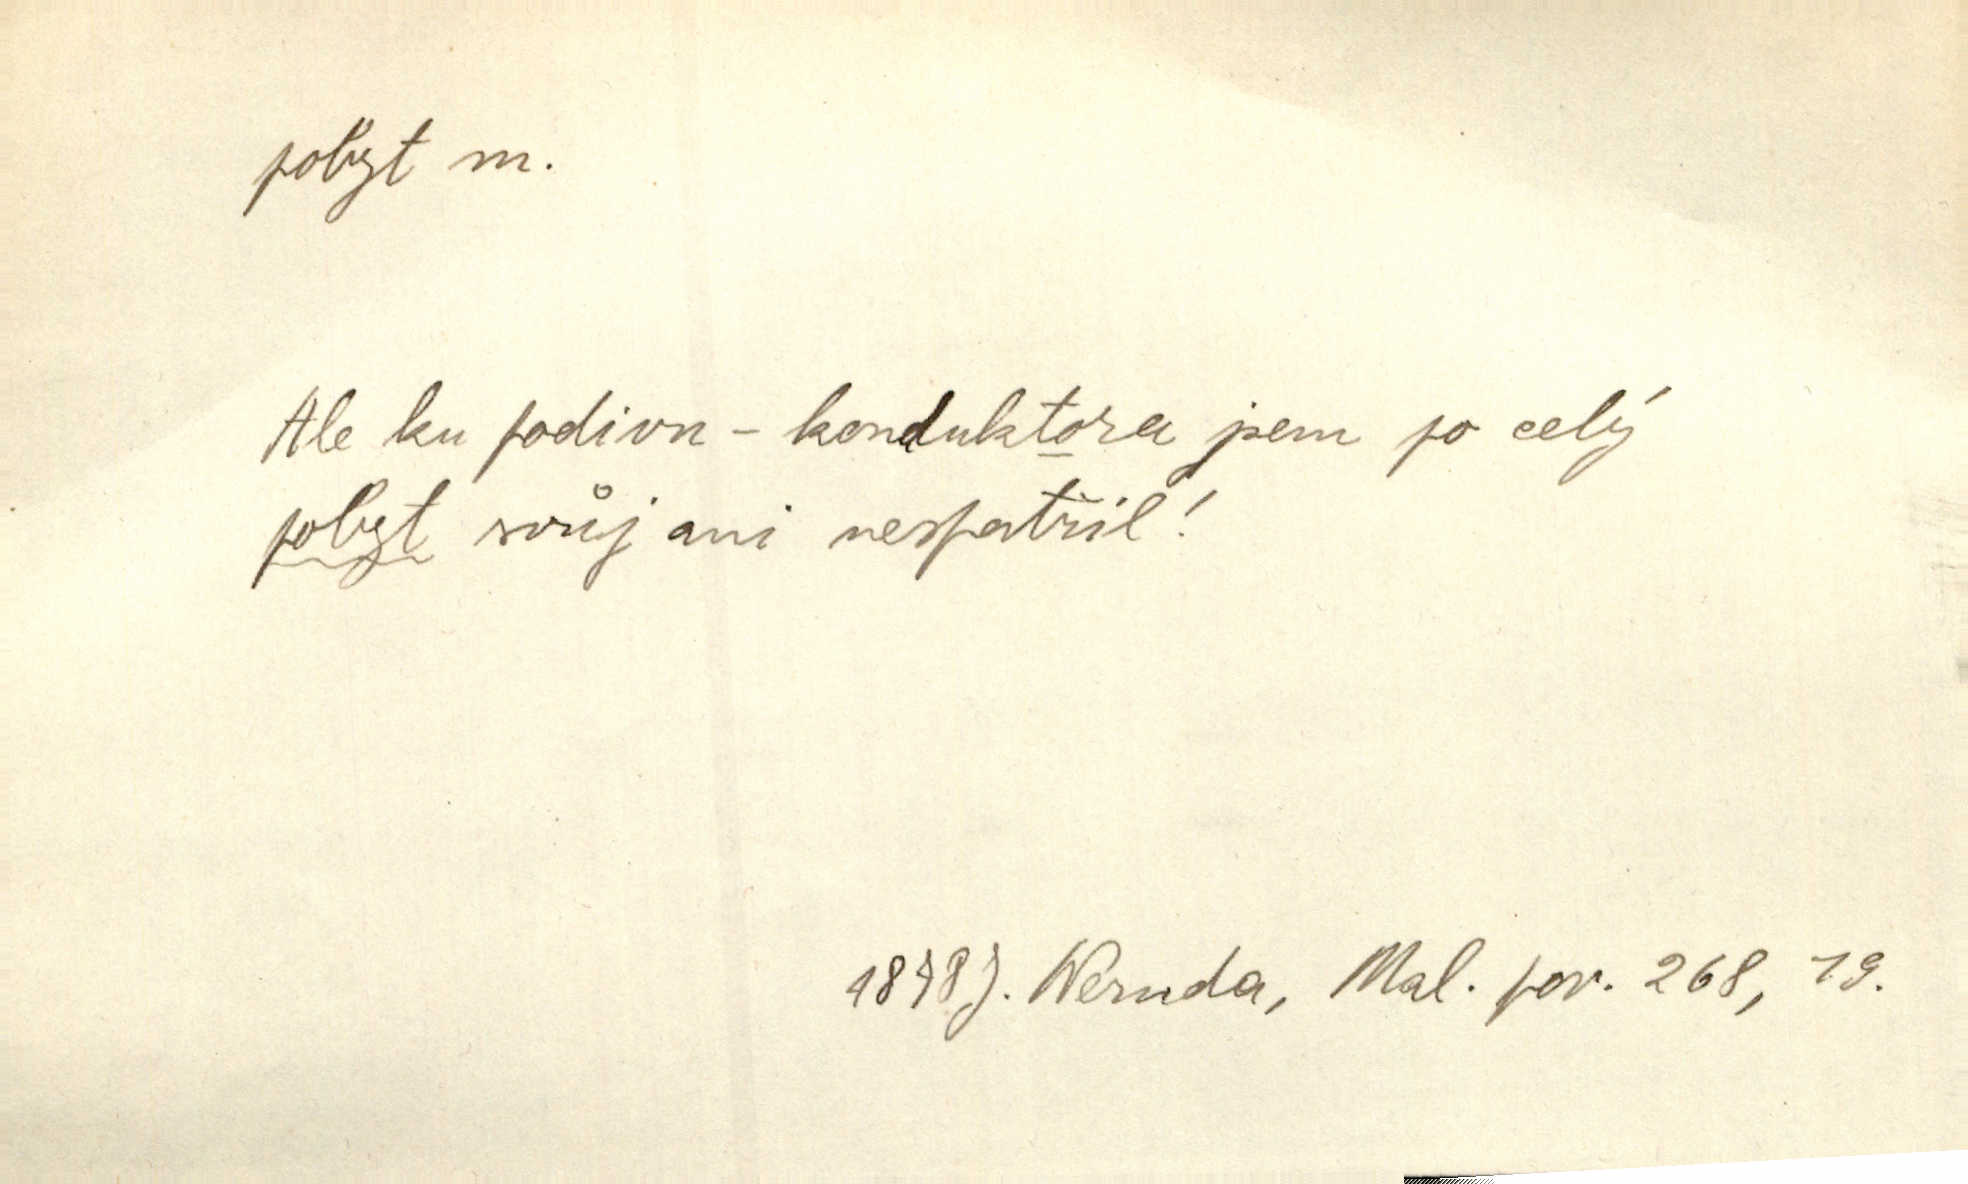 pobyt m.
Ale ku podivu - konduktora jsem po celý
pobyt svůj ani nespatřil!
1878 J. Neruda, Mal. pov. 268, 19.